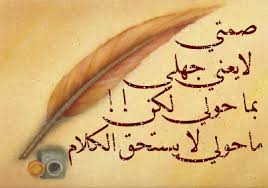 صمتي
لايعني جهلي
بما حولي لكن !!
ماحولي لا يستحق الكلام